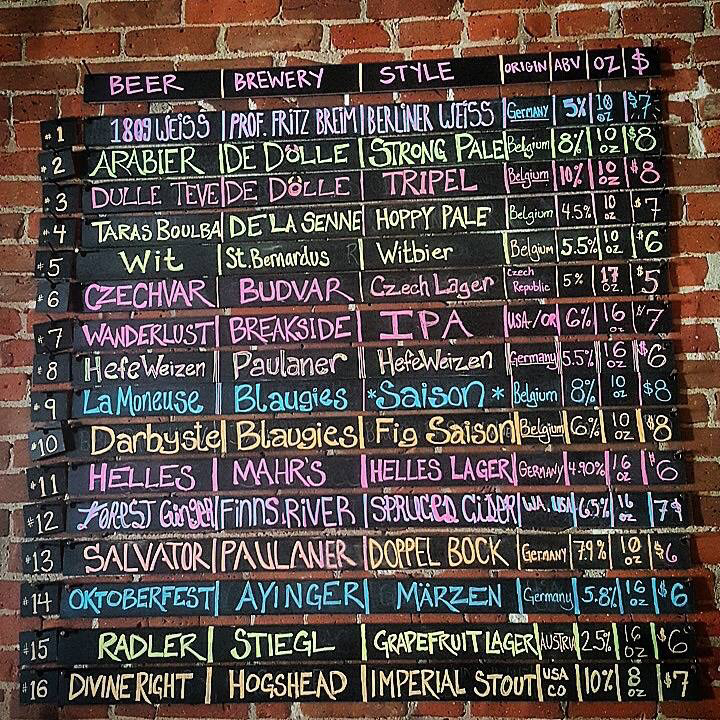 BEER BREWERY STYLE ORIGIN ABV OZ $
#1 1809 WEISS PROF. FRITZ BREIM BERLINER WEISS Germany 5% 10 OZ $7
#2 ARABIER DE DOLLE STRONG PALE Belgium 8% 10 OZ $8
#3 DULLE TEVE DE DOLLE TRIPEL Belgium 10% 10 OZ $8
#4 TARAS BOULBA DE LA SENNE HOPPY PALE Belgium 4.5% 10 OZ $7
#5 Wit St. Bernardus Witbier Belgium 5.5% 10 OZ $6
#6 CZECHVAR BUDVAR Czech Lager Czech Republic 5% 17 OZ. $5
#7 WANDERLUST BREAKSIDE IPA USA/OR 6% 16 OZ $7
#8 HefeWeizen Paulaner HefeWeizen Germany 5.5% 16 OZ $6
#9 La Moneuse Blaugies *Saison* Belgium 8% 10 OZ $8
#10 Darbyste Blaugies Fig Saison Belgium 6% 10 OZ $8
#11 HELLES MAHRS HELLES LAGER GERMANY 4.90% 16 OZ $6
#12 FOREST GinGer FINNS.RIVER SPRUCED CIDER WA. USA 6.5% 16 OZ 7$
#13 SALVATOR PAULANER DOPPEL BOCK GERMANY 7.9% 10 OZ $6
#14 OKTOBERFEST AYINGER MÄRZEN Germany 5.8% 16 OZ $6
#15 RADLER STIEGL GRAPEFRUIT LAGER AUSTRIA 2.5% 16 OZ $6
#16 DIVINE RIGHT HOGSHEAD IMPERIAL STOUT USA CO 10% 8 OZ $7